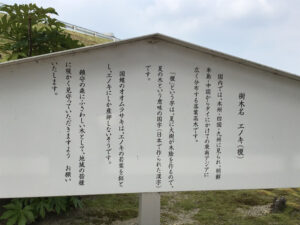 樹木名　エノキ（榎）
国内では、本州・四国・九州に見られ、朝鮮
半島・中国からタイにかけての東南アジアに
広く分布する落葉高木です。
「榎」という字は、夏に大樹が木陰を作るので、
夏の木という意味の国字（日本で作られた漢字）
です。
国蝶のオオムラサキは、エノキの若葉を餌と
し、エノキにしか産卵しないそうです。
鎮守の森にふさわしい木として、地域の皆様
に暖かく見守っていただきますよう　お願い
いたします。